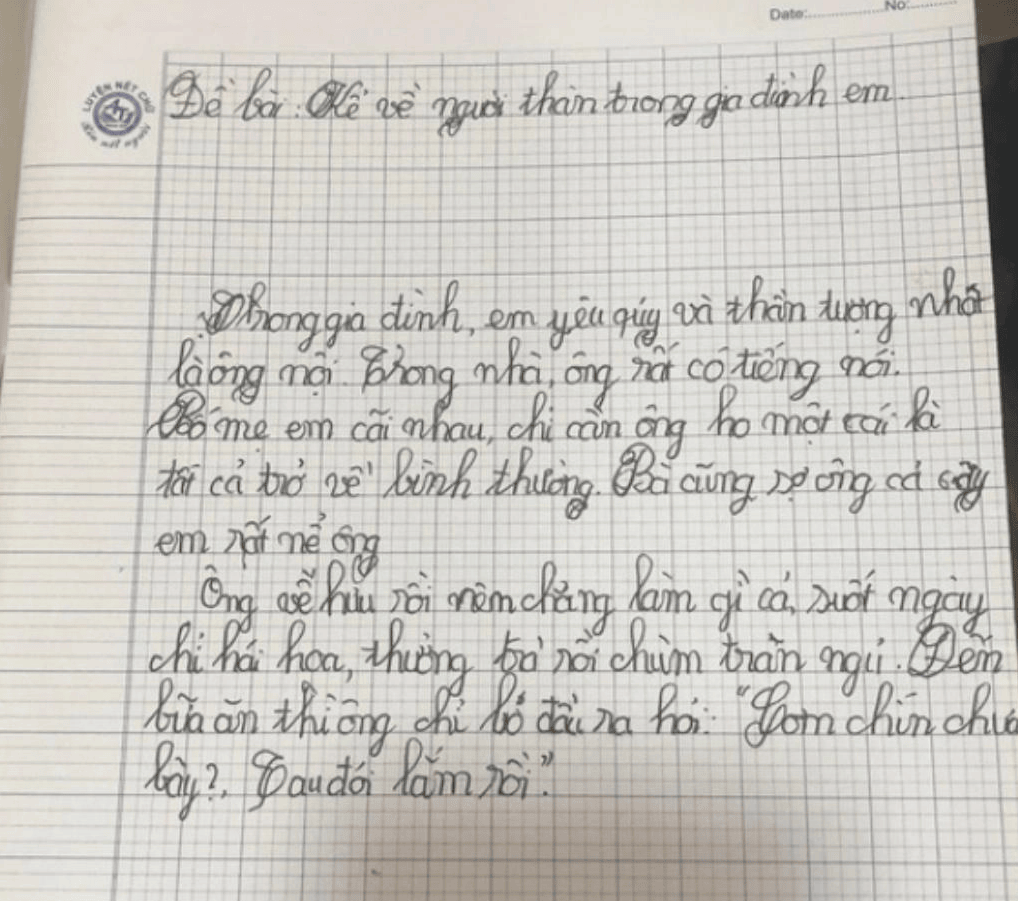 Date:............No:............
LUYỆN NÉT CHỮ
Rèn nết người
Đề bài: Kể về người thân trong gia đình em.
Trong gia đình, em yêu qúy và thần tượng nhất
là ông nội. Trong nhà, ông rất có tiếng nói.
Bố mẹ em cãi nhau, chỉ cần ông ho một cái là
tất cả trở về bình thường. Bà cũng sợ ông cơ
em rất nể ông
Ông về hưu rồi nên chẳng làm gì cả, suốt ngày
chỉ hái hoa, thưởng trà rồi chùm trăn ngủ. Đến
bữa ăn thì ông chỉ ló đầu ra hỏi: "Cơm chín chưa
bây?, Tau đói lắm rồi."